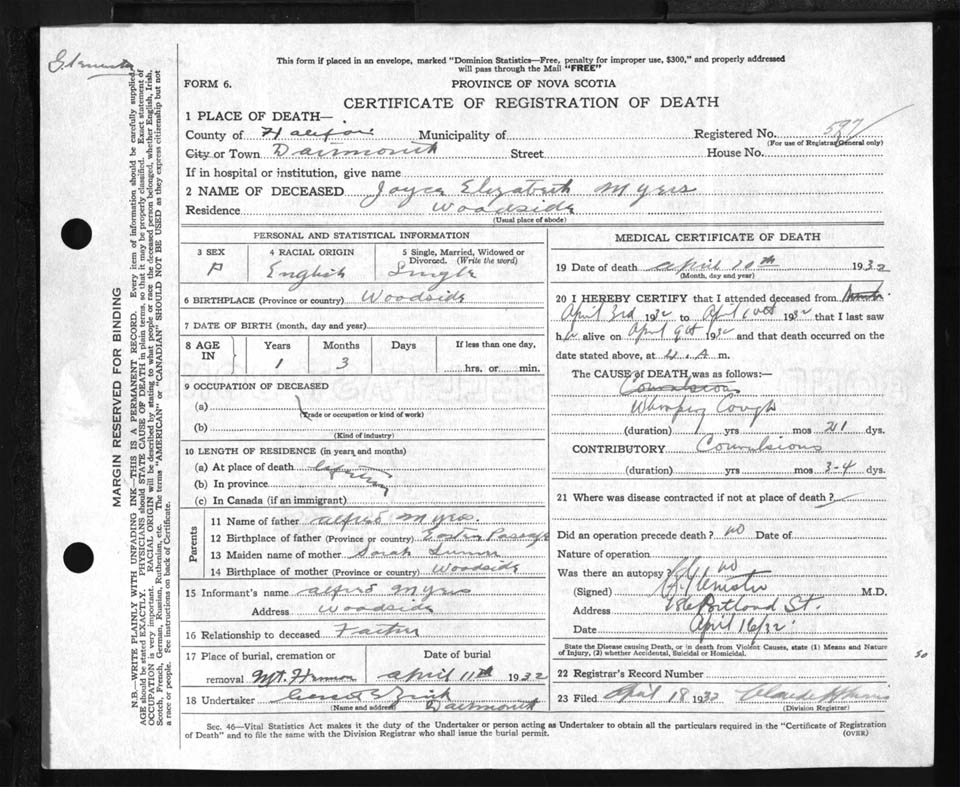 This form if placed in an envelope, marked "Dominion Statistics—Free, penalty for improper use, $300," and properly addressed
will pass through the Mail "FREE"
FORM 6.
PROVINCE OF NOVA SCOTIA
CERTIFICATE OF REGISTRATION OF DEATH
1 PLACE OF DEATH—
County of Halifax Municipality of
Registered No.
(For use of Registrar General only)
City or Town Dartmouth Street House No.
If in hospital or institution, give name
2 NAME OF DECEASED Joyce Elizabeth Myers
Residence Woodside
(Usual place of abode)
PERSONAL AND STATISTICAL INFORMATION
3 SEX
4 RACIAL ORIGIN
5 Single, Married, Widowed or
Divorced. (Write the word)
English Single
6 BIRTHPLACE (Province or country) Woodside
7 DATE OF BIRTH (month, day and year)
8 AGE
IN
Years Months Days If less than one day,
1 3 hrs. or min.
9 OCCUPATION OF DECEASED
(a)
(Trade or occupation or kind of work)
(b)
(Kind of industry)
10 LENGTH OF RESIDENCE (in years and months)
(a) At place of death
(b) In province
(c) In Canada (if an immigrant)
Parents
11 Name of father Alfred Myers.
12 Birthplace of father (Province or country) Eastern Passage
13 Maiden name of mother Sarah
14 Birthplace of mother (Province or country) Woodside
15 Informant's name Alfred Myers
Address Woodside
16 Relationship to deceased Father
17 Place of burial, cremation or Date of burial
removal Mt. Hermon April 11th 1932
18 Undertaker
(Name and address) Dartmouth
MEDICAL CERTIFICATE OF DEATH
19 Date of death April 10th 1932
(Month, day and year)
20 I HEREBY CERTIFY that I attended deceased from
April 3rd 1932 to April 10th 1932 that I last saw
h alive on April 9th 1932 and that death occurred on the
date stated above, at 4. A m.
The CAUSE of DEATH was as follows:—
Convulsions
Whooping Cough
(duration) yrs mos 21 dys.
CONTRIBUTORY Convulsions
(duration) yrs mos 3-4 dys.
21 Where was disease contracted if not at place of death?
Did an operation precede death? no Date of
Nature of operation
Was there an autopsy? no
(Signed) M.D.
Address Portland St.
Date April 16/32.
State the Disease causing Death, or in death from Violent Causes, state (1) Means and Nature
of Injury, (2) whether Accidental, Suicidal or Homicidal.
22 Registrar's Record Number
23 Filed April 18 1932
(Division Registrar)
Sec. 46—Vital Statistics Act makes it the duty of the Undertaker or person acting as Undertaker to obtain all the particulars required in the "Certificate of Registration
of Death" and to file the same with the Division Registrar who shall issue the burial permit.
(OVER)
MARGIN RESERVED FOR BINDING
N.B.—WRITE PLAINLY WITH UNFADING INK—THIS IS A PERMANENT RECORD. Every item of information should be carefully supplied.
AGE should be stated EXACTLY. PHYSICIANS should STATE CAUSE OF DEATH in plain terms, so that it may be properly classified. Exact statement of
OCCUPATION is very important. RACIAL ORIGIN will be described by stating to what people or race the deceased person belonged, whether English, Irish,
Scotch, French, German, Russian, Ruthenian, etc. The terms "AMERICAN" or "CANADIAN" SHOULD NOT BE USED as they express citizenship but not
a race or people. See instructions on back of Certificate.
50